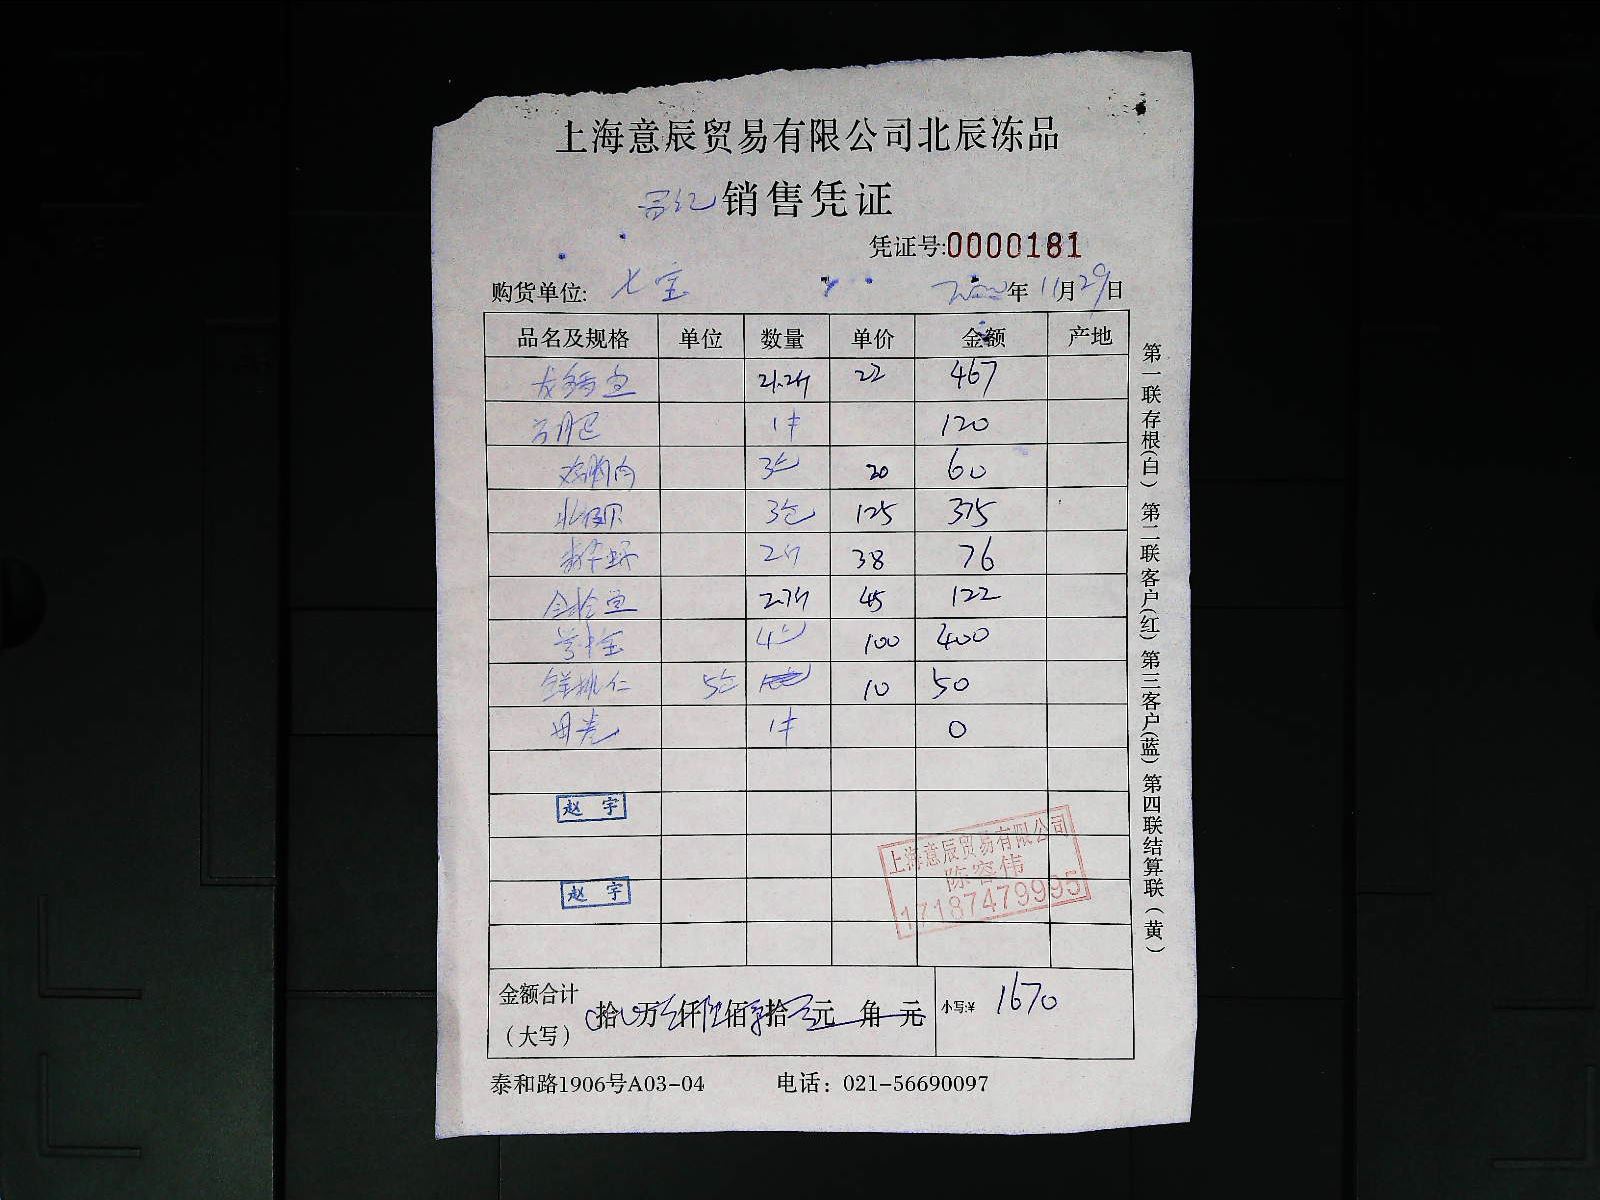 上海意辰贸易有限公司北辰冻品
销售凭证
凭证号:0000181
购货单位: 七宝 年 11月29日
品名及规格 单位 数量 单价 金额 产地
21.2斤 22 467
1件 120
鸡胸肉 3包 20 60
北极贝 3包 125 375
2斤 38 76
金枪鱼 2.7斤 45 122
4包 100 400
鲜桃仁 5包 10 50
1件 0
赵宇
赵宇
上海意辰贸易有限公司
陈容伟
17187479995
金额合计
(大写) 拾 万 仟 佰 拾 元 角 元 小写:¥ 1670
泰和路1906号A03-04 电话：021-56690097
第一联存根(白) 第二联客户(红) 第三客户(蓝) 第四联结算联(黄)